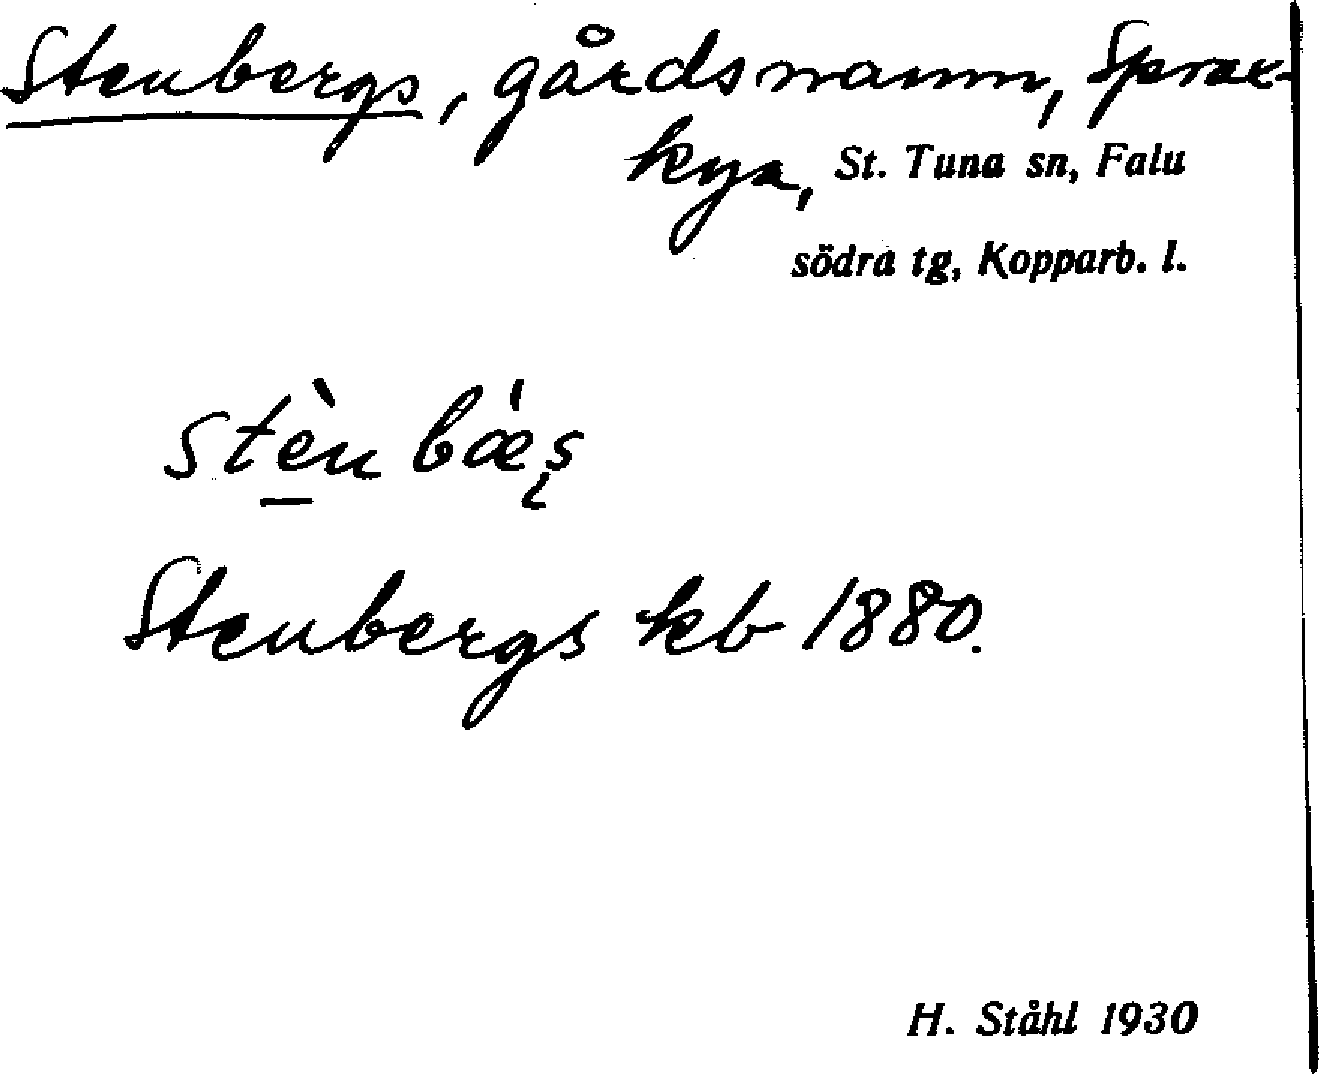 Stenbergs, gårdsnamn, Sprax-
kya, St. Tuna sn, Falu
södra tg, Kopparb. l.
stè̠nbæ̀ʂ
Stenbergs kb 1880.
H. Ståhl 1930